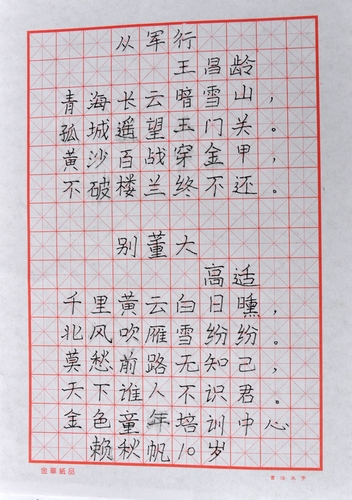 从军行
王昌龄
青海长云暗雪山，
孤城遥望玉门关。
黄沙百战穿金甲，
不破楼兰终不还。
别董大
高适
千里黄云白日曛，
北风吹雁雪纷纷。
莫愁前路无知己，
天下谁人不识君。
金色童年培训中心
赖秋帆10岁
金華紙品